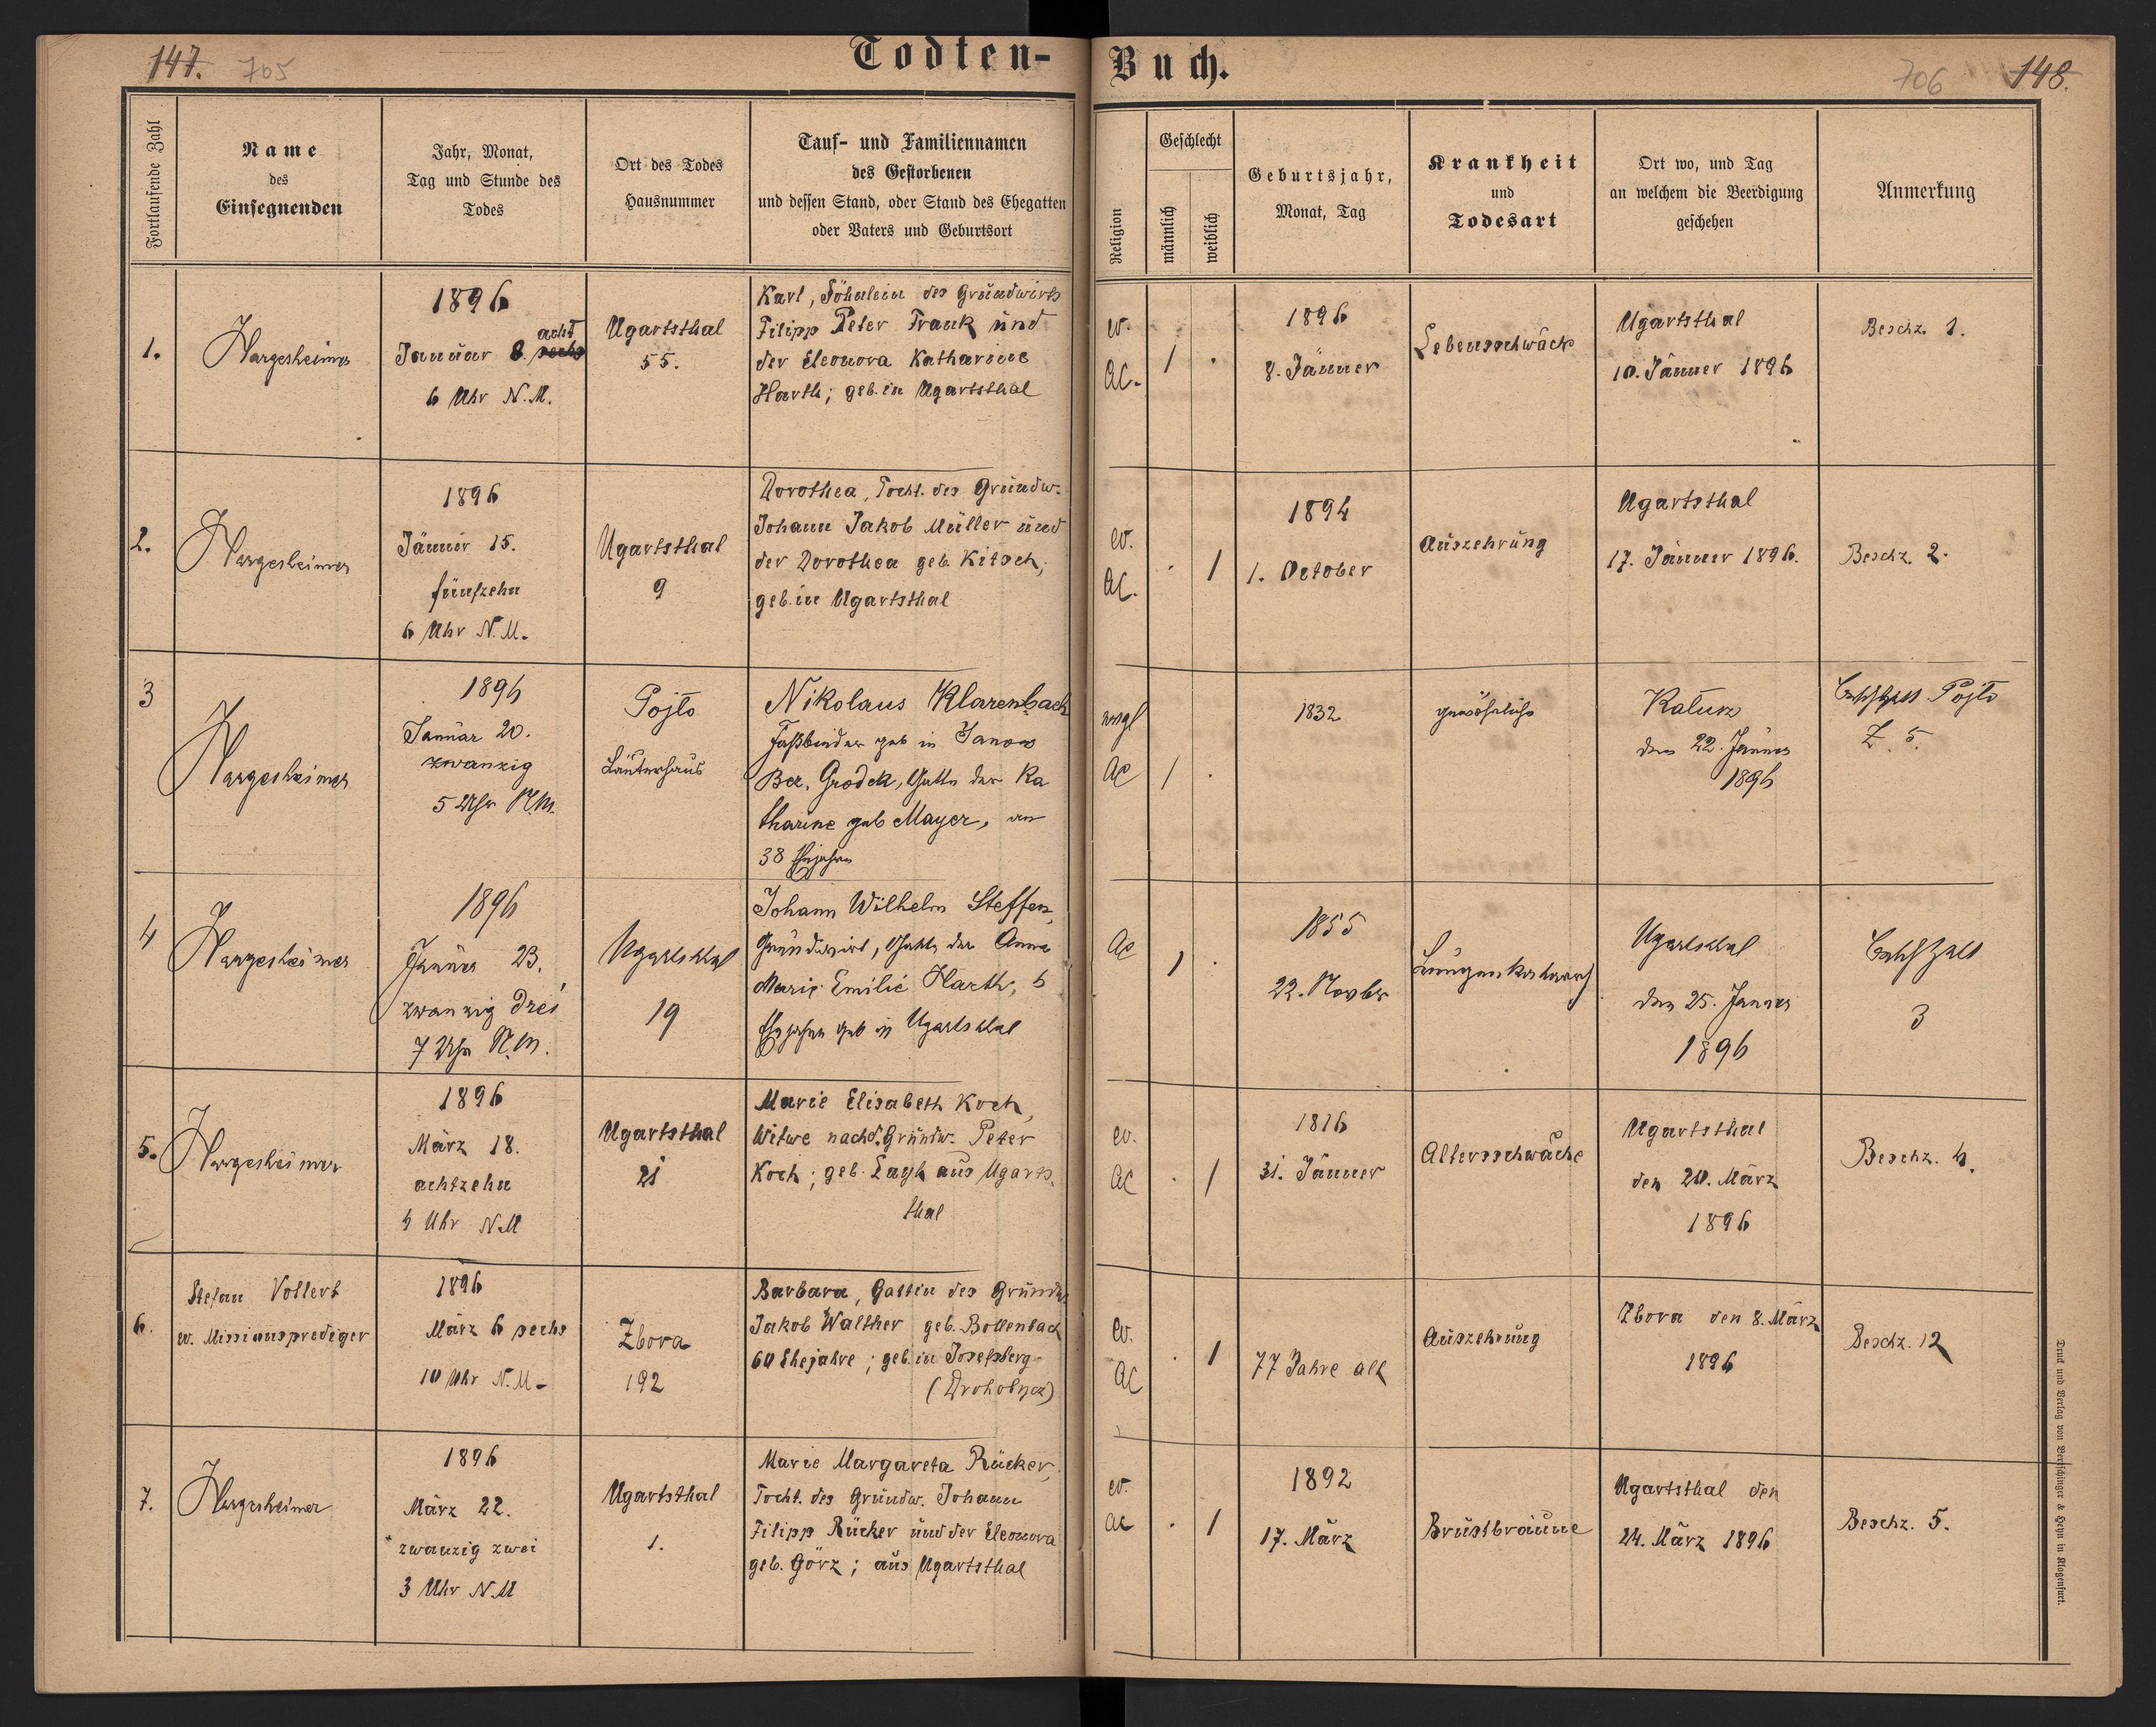 147. 705
Todten-Buch.
706 148.
Fortlaufende Zahl
Name
des
Einsegnenden
Jahr, Monat,
Tag und Stunde des
Todes
Ort des Todes
Hausnummer
Tauf- und Familiennamen
des Gestorbenen
und dessen Stand, oder Stand des Ehegatten
oder Vaters und Geburtsort
Religion
Geschlecht
männlich
weiblich
Geburtsjahr,
Monat, Tag
Krankheit
und
Todesart
Ort wo, und Tag
an welchem die Beerdigung
geschehen
Anmerkung
1.
Hargesheimer
1896
acht
Januar 8. sechs
6 Uhr N.M.
Ugartsthal
55.
Karl, Söhnlein des Grundwirts
Filipp Peter Frank und
der Eleonora Katharine
Harth; geb. in Ugartsthal
ev.
AC.
1 .
1896
8. Jänner
Lebensschwäche
Ugartsthal
10. Jänner 1896
Beschz. 1.
2.
Hargesheimer
1896
Jänner 15.
fünfzehn
6 Uhr N.M.
Ugartsthal
9
Dorothea, Tocht. des Grundw.
Johann Jakob Müller und
der Dorothea geb. Kitsch;
geb. in Ugartsthal
ev.
AC.
. 1
1894
1. October
Auszehrung
Ugartsthal
17. Jänner 1896.
Beschz. 2.
3
Hargesheimer
1896
Januar 20.
zwanzig
5 Uhr N.M.
Pojlo
Läuterhaus
Nikolaus Klarenbach
Faßbinder geb in Janow
Bez. Grodek, Gatte der Ka
tharine geb Mayer, an
38 Ehejahre
evgl
AC
1 .
1832
gewöhnliche
Kalusz
den 22. Jänner
1896
Pojlo
Z. 5.
4
Hargesheimer
1896
Jänner 23.
zwanzig drei
7 Uhr N.M.
Ugartsthal
19
Johann Wilhelm Steffen,
Grundwirt, Gatte der Anna
Marie Emilie Harth, 6
Ehejahre geb in Ugartsthal
AC
1 .
1855
22. Novbr
Lungenkatarrh
Ugartsthal
den 25. Janner
1896
3
5.
Hargesheimer
1896
März 18.
achtzehn
4 Uhr N.M
Ugartsthal
21
Marie Elisabeth Koch,
Witwe nach d. Grundw. Peter
Koch; geb. Layh aus Ugarts.
thal
ev.
AC
. 1
1816
31. Jänner
Altersschwäche
Ugartsthal
den 20. März
1896
Beschz. 4.
6.
Stefan Vollert
ev. Missionsprediger
1896
März 6 sechs
10 Uhr N.M.
Zbora
192
Barbara, Gattin des Grundw.
Jakob Walther geb. Bollenbach
60 Ehejahre; geb. in Josefsberg
(Drohobycz)
ev.
AC
. 1
77 Jahre alt
Auszehrung
Zbora den 8. März
1896
Beschz. 12
7.
Hargesheimer
1896
März 22.
zwanzig zwei
3 Uhr N.M
Ugartsthal
1.
Marie Margareta Rücker,
Tocht. des Grundw. Johann
Filipp Rücker und der Eleonora
geb. Görz; aus Ugartsthal
ev.
ac
. 1
1892
17. März
Brustbräune
Ugartsthal den
24. März 1896
Beschz. 5.
Druck und Verlag von Bertschinger & Heyn in Klagenfurt.